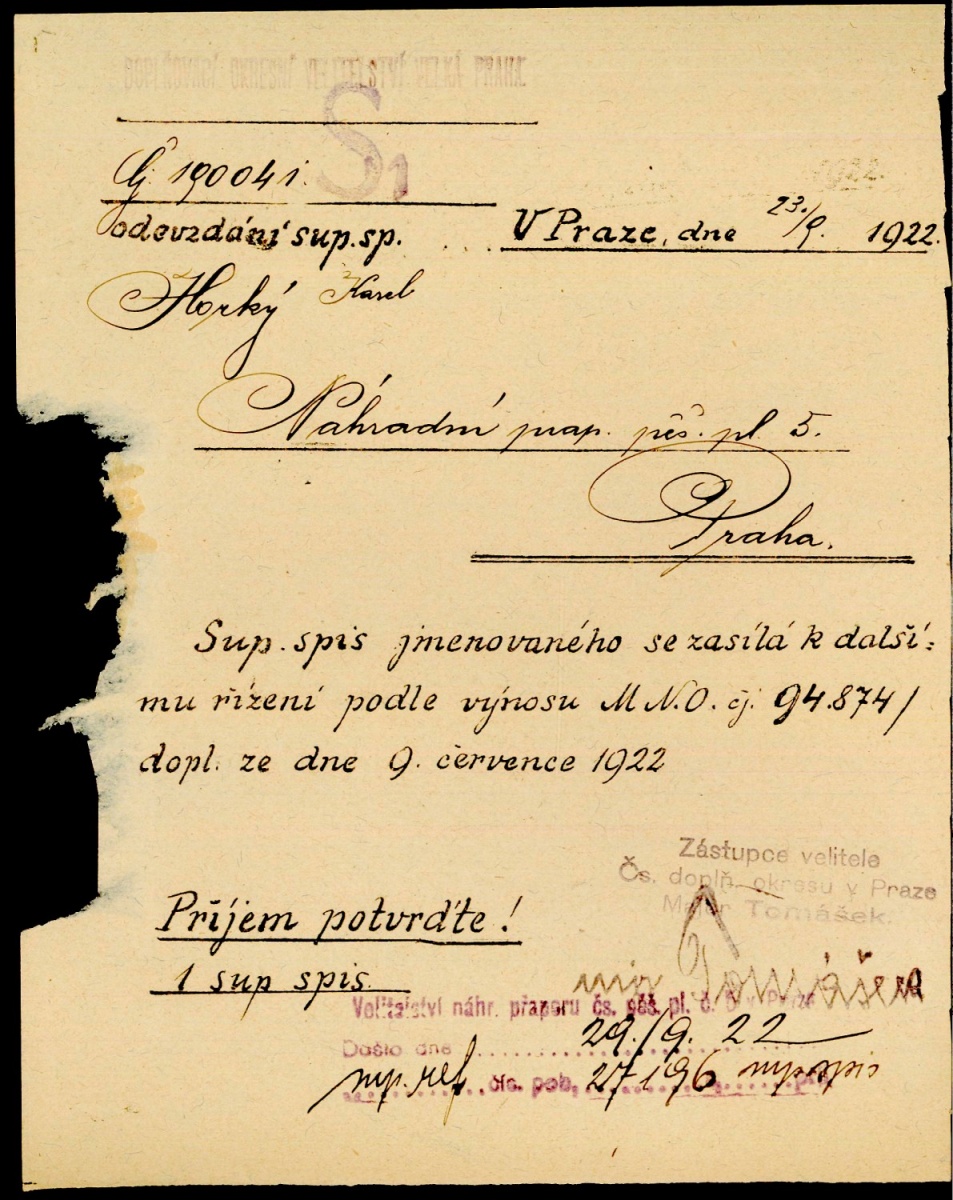 DOPLŇOVACÍ OKRESNÍ VELITELSTVÍ VELKÁ PRAHA.
S1
Čj. 190041.
1922.
odevzdání sup.sp. V Praze, dne 23./9. 1922.
Horký Karel
Náhradní prap. pěš. pl. 5.
Praha.
Sup. spis jmenovaného se zasílá k další=
mu řízení podle výnosu M N.O. čj. 94.874/
dopl. ze dne 9. července 1922
Zástupce velitele
Čs. doplň. okresu v Praze
Major Tomášek.
Příjem potvrďte!
1 sup spis.
mjr Tomášek
Velitelství náhr. praporu čs. pěš. pl. č. 5 v Praze
Došlo dne 29./9. 22
čís. 27196